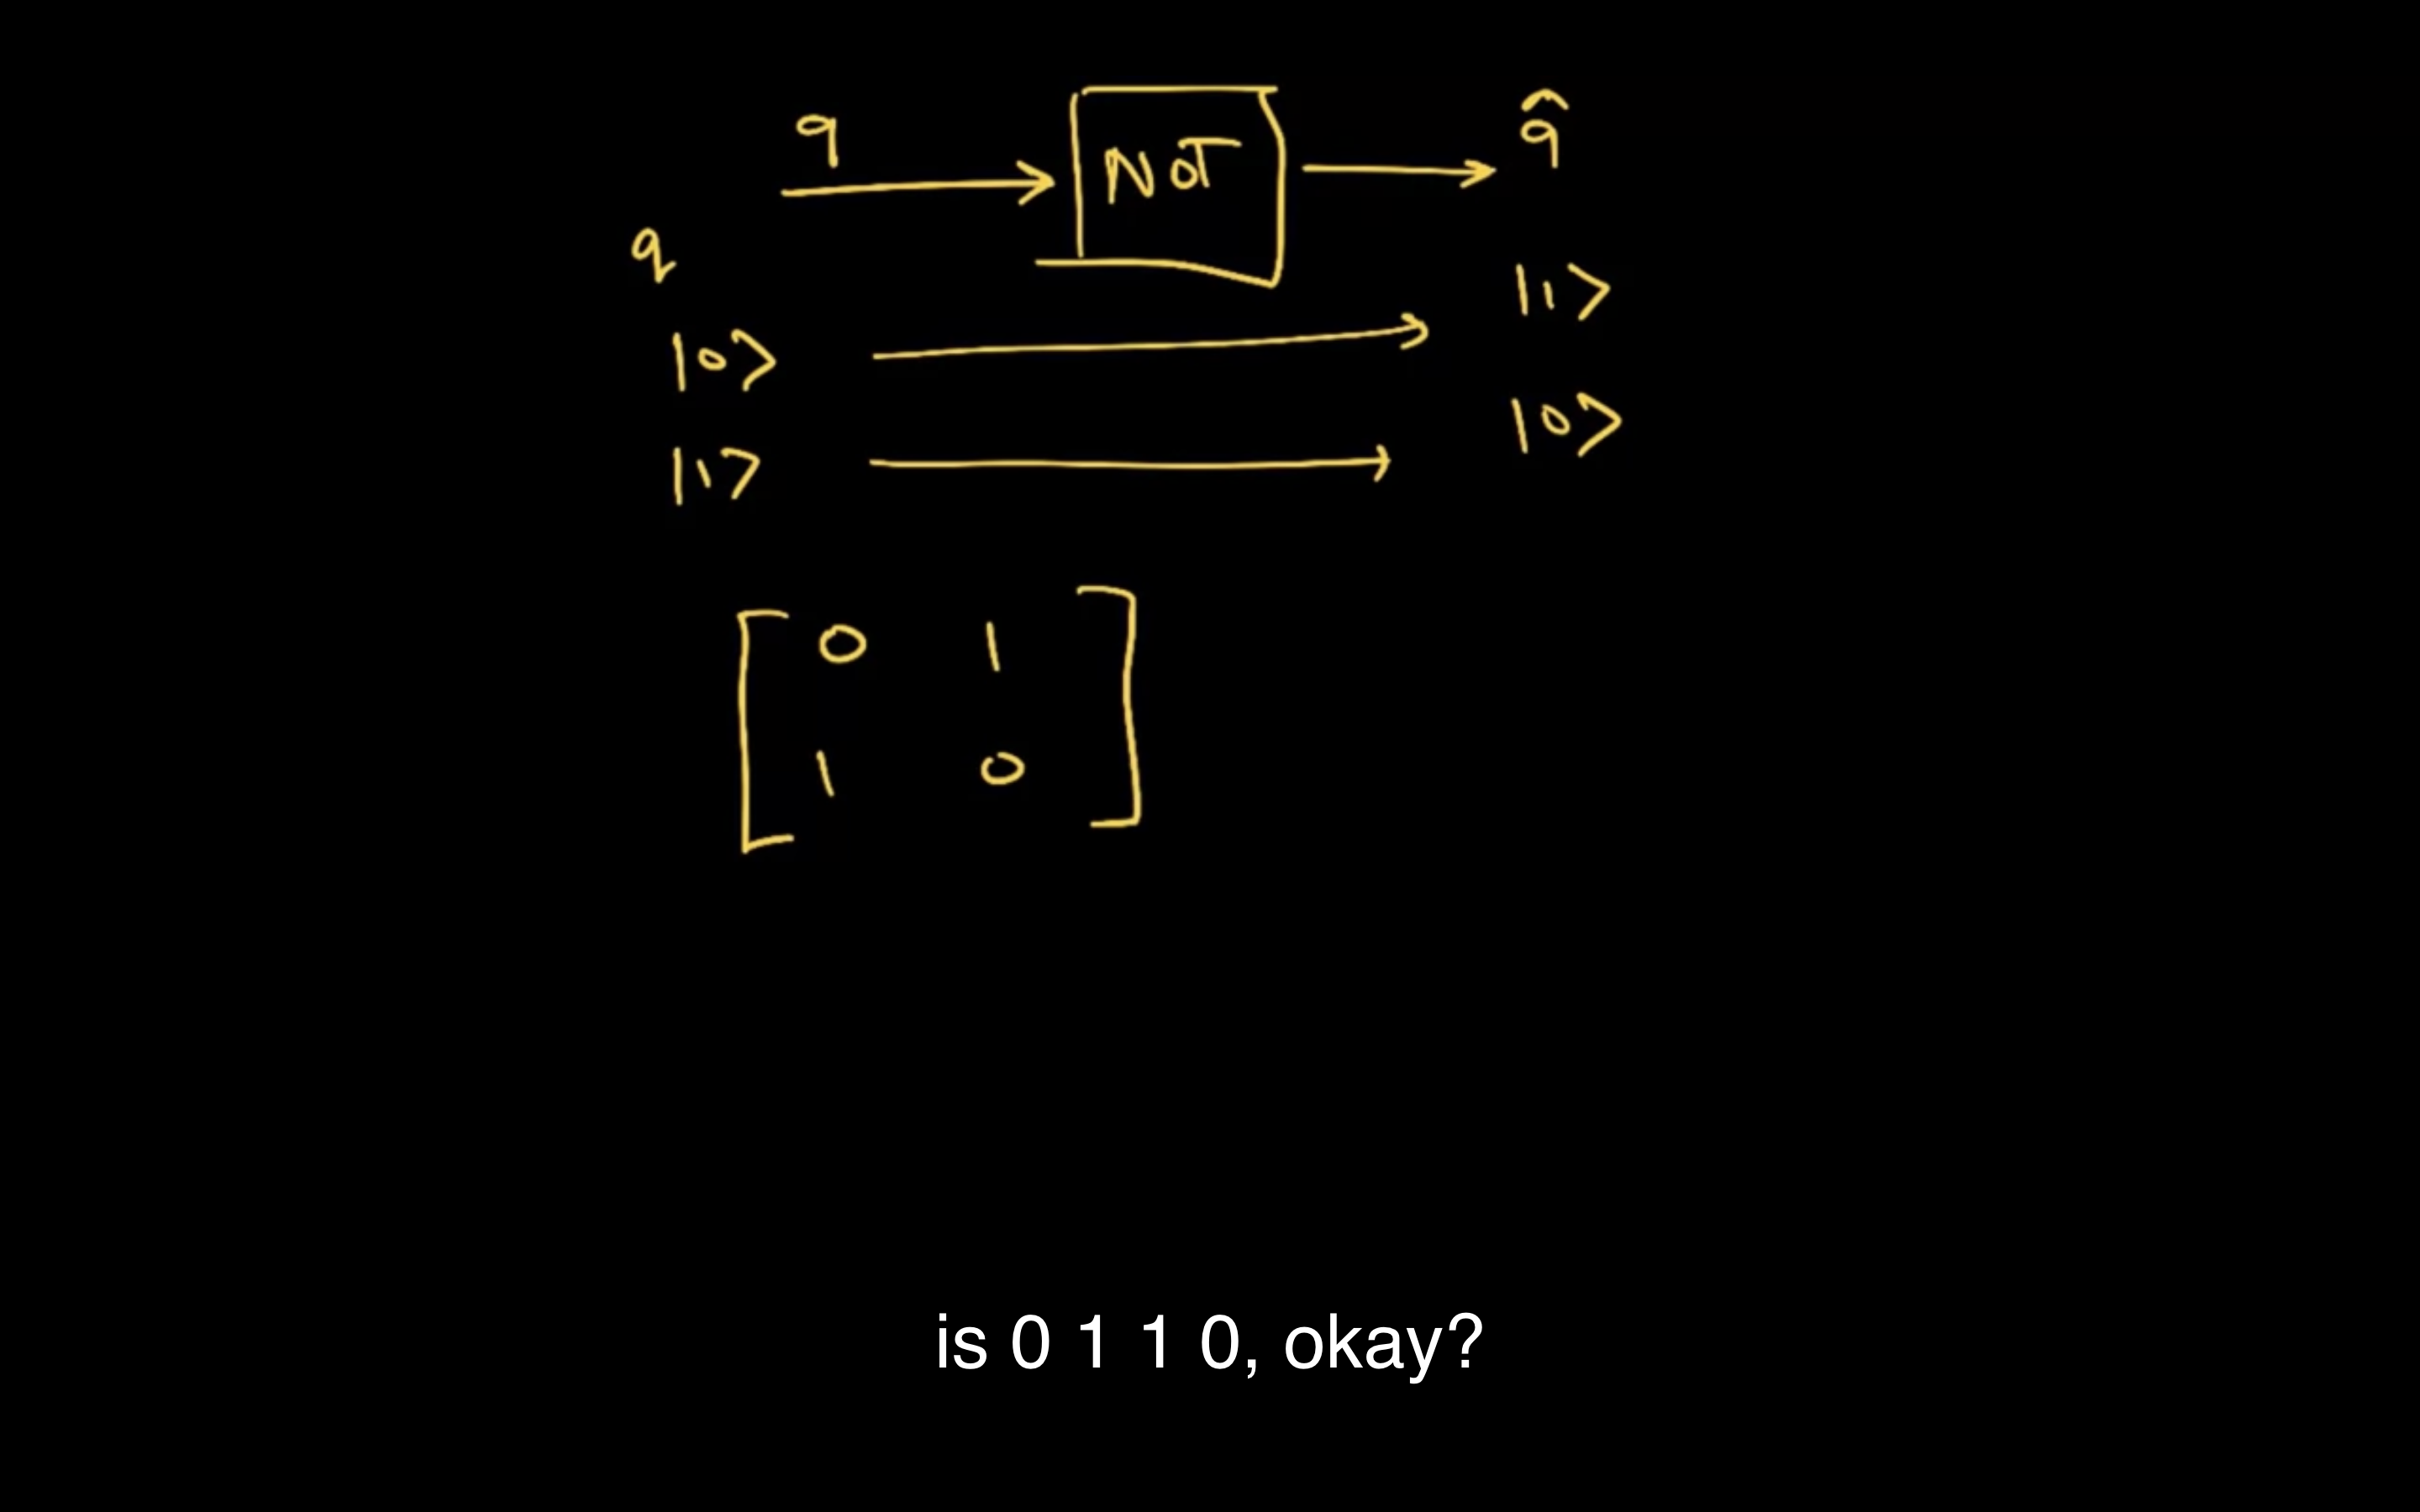 q NOT q̂
q
|0> |1>
|1> |0>
0 1
1 0
is 0 1 1 0, okay?